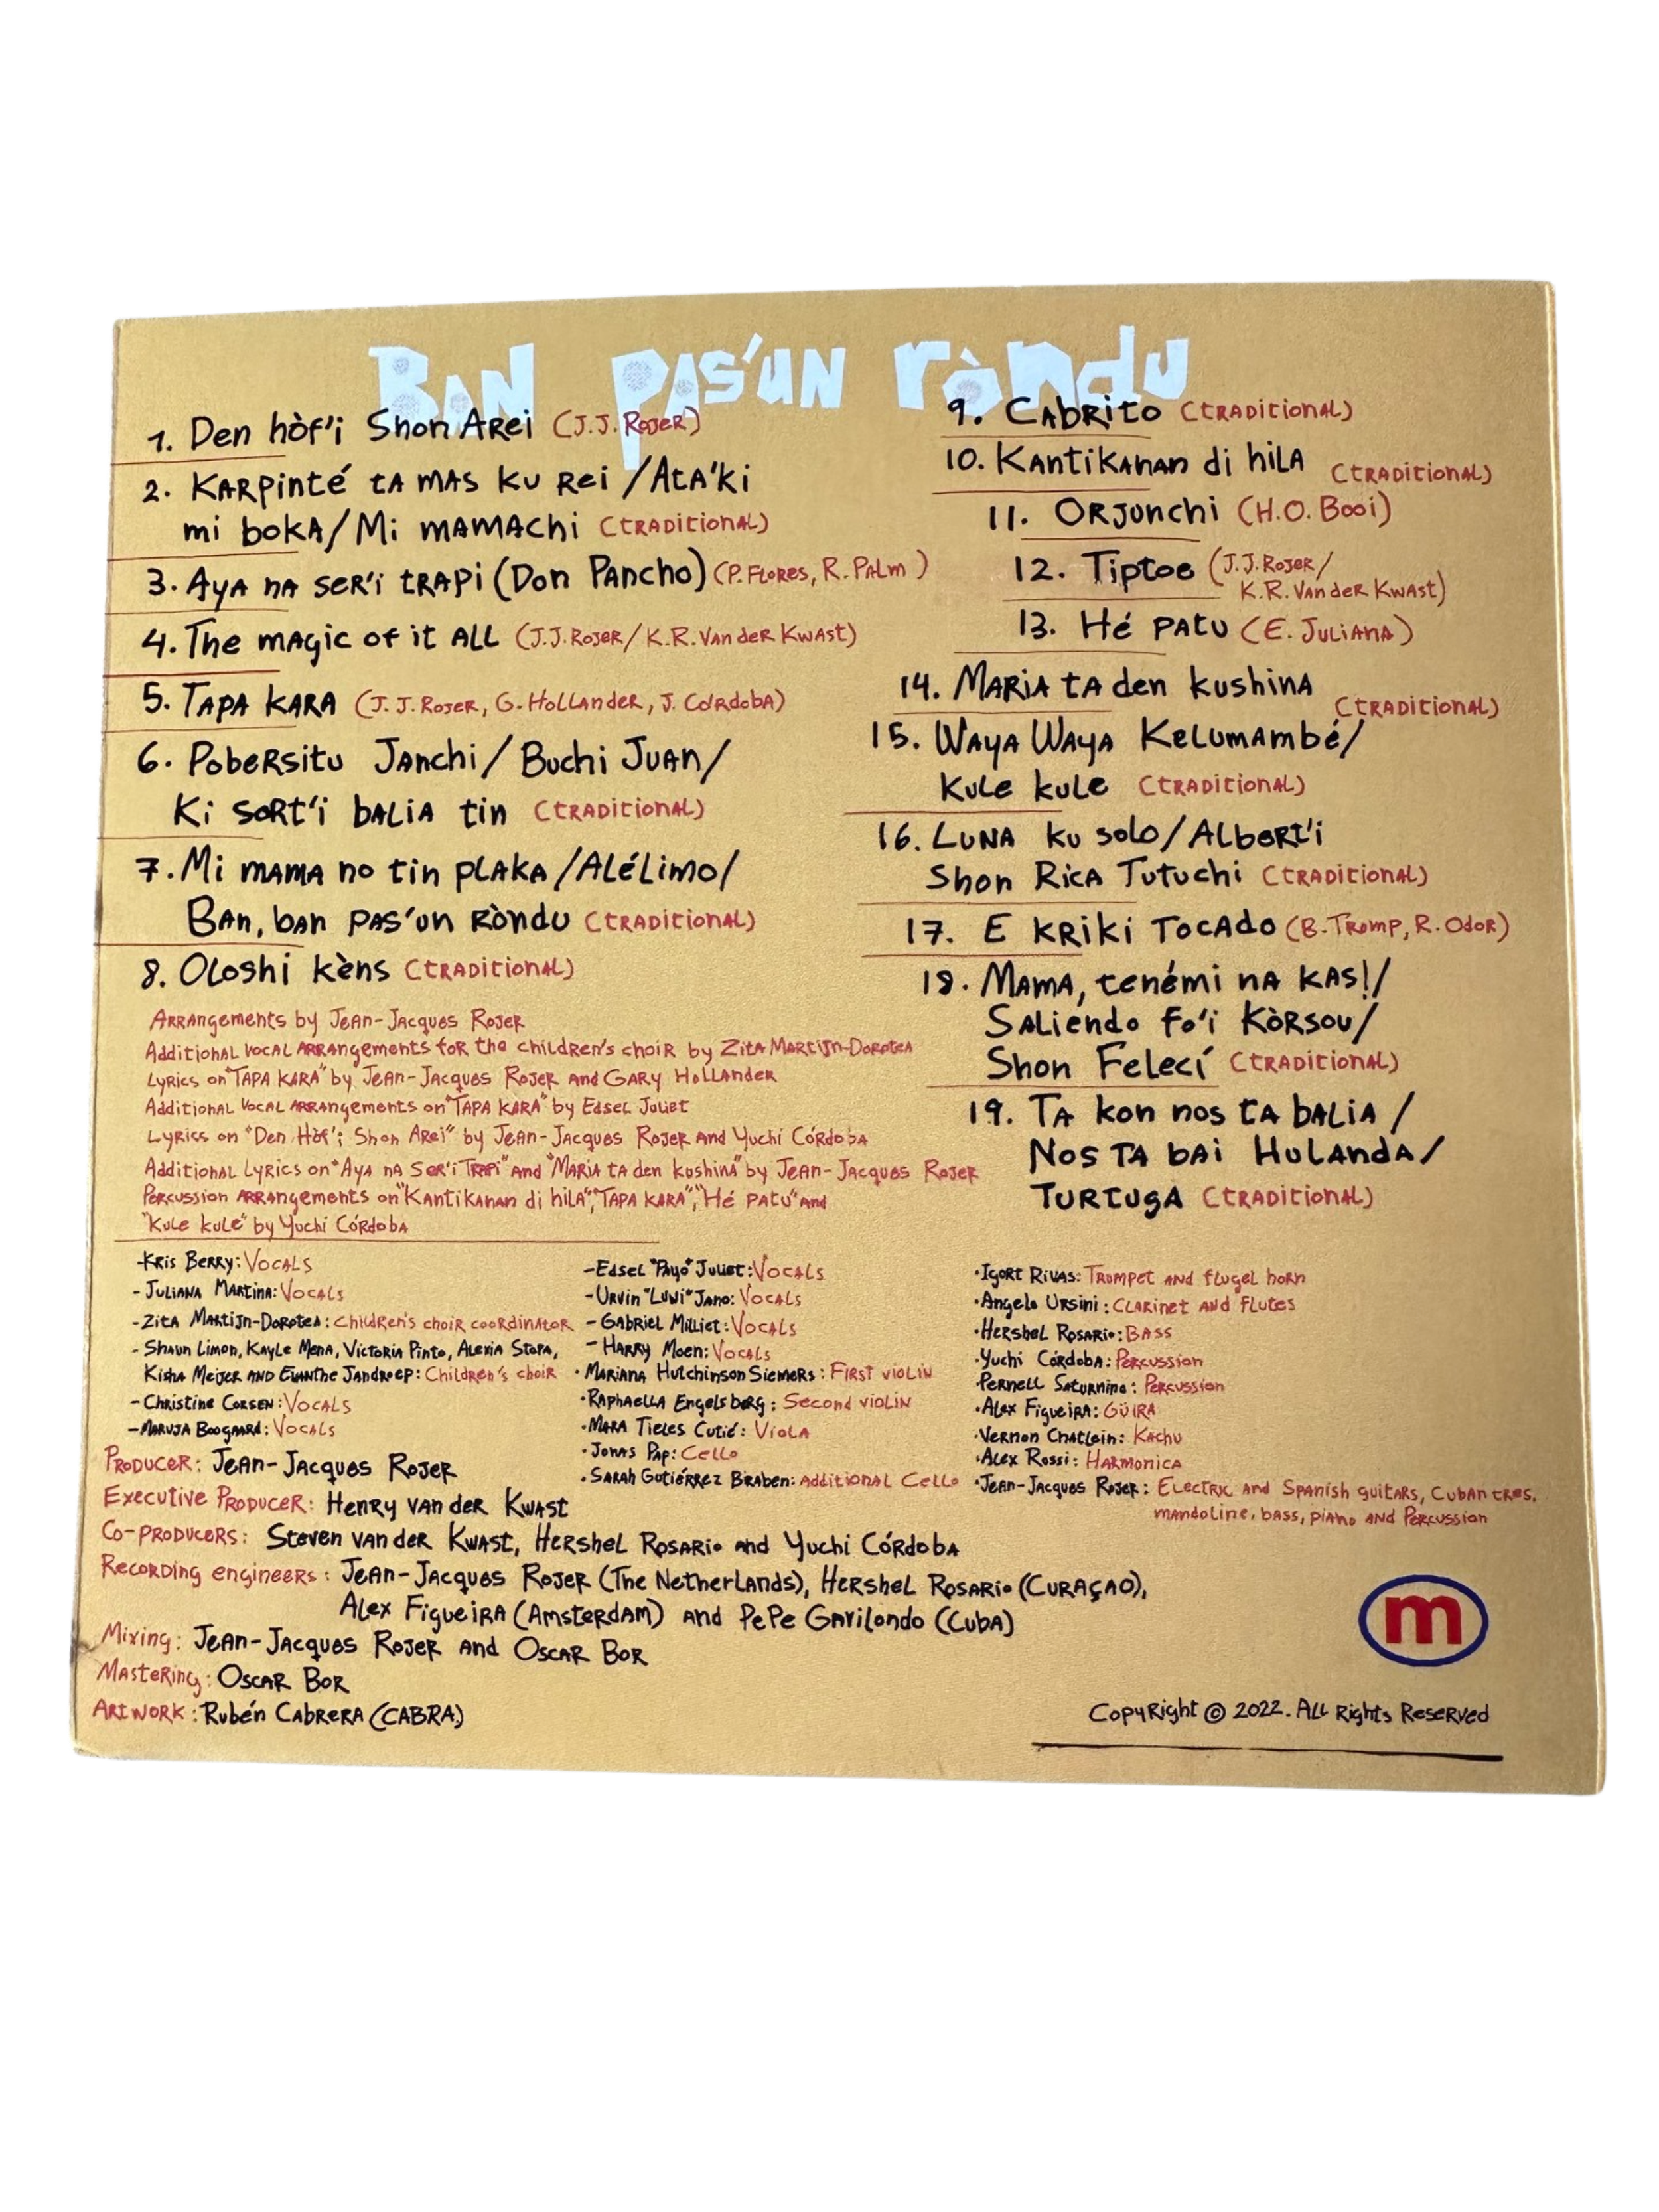 Ban pas'un ròndu
1. Den hòf'i Shon Arei (J.J. Rojer)
2. Karpinté ta mas ku rei / Ata'ki
mi boka / Mi mamachi (traditional)
3. Aya na ser'i trapi (Don Pancho) (P. Flores, R. Palm)
4. The magic of it all (J.J. Rojer / K.R. Van der Kwast)
5. Tapa kara (J.J. Rojer, G. Hollander, J. Córdoba)
6. Pobersitu Janchi / Buchi Juan /
Ki sort'i balia tin (traditional)
7. Mi mama no tin plaka / Alélimo /
Ban, ban pas'un ròndu (traditional)
8. Oloshi kèns (traditional)
9. Cabrito (traditional)
10. Kantikanan di hila (traditional)
11. Orjonchi (H.O. Booi)
12. Tiptoe (J.J. Rojer /
K.R. Van der Kwast)
13. Hé patu (E. Juliana)
14. Maria ta den kushina (traditional)
15. Waya Waya Kelumambé /
Kule kule (traditional)
16. Luna ku solo / Albert'i
Shon Rica Tutuchi (traditional)
17. E kriki Tocado (B. Tromp, R. Odor)
18. Mama, tenémi na kas! /
Saliendo fo'i Kòrsou /
Shon Felecí (traditional)
19. Ta kon nos ta balia /
Nos ta bai Hulanda /
Turtuga (traditional)
Arrangements by Jean-Jacques Rojer
Additional vocal arrangements for the children's choir by Zita Martijn-Dorotea
Lyrics on "Tapa kara" by Jean-Jacques Rojer and Gary Hollander
Additional vocal arrangements on "Tapa kara" by Edsel Juliet
Lyrics on "Den Hòf'i Shon Arei" by Jean-Jacques Rojer and Yuchi Córdoba
Additional Lyrics on "Aya na Ser'i Trapi" and "Maria ta den kushina" by Jean-Jacques Rojer
Percussion arrangements on "Kantikanan di hila", "Tapa kara", "Hé patu" and
"Kule kule" by Yuchi Córdoba
-Kris Berry: Vocals
-Juliana Martina: Vocals
-Zita Martijn-Dorotea: Children's choir coordinator
-Shaun Limon, Kayle Mena, Victoria Pinto, Alexia Stopa,
Kisha Meijer and Evanthe Jandroep: Children's choir
-Christine Corsen: Vocals
-Maruja Boogaard: Vocals
-Edsel "Payo" Juliet: Vocals
-Urvin "Luwi" Jano: Vocals
-Gabriel Milliet: Vocals
-Harry Moen: Vocals
·Mariana Hutchinson Siemers: First violin
·Raphaella Engelsberg: Second violin
·Mara Tieles Cutié: Viola
·Jonas Pap: Cello
·Sarah Gutiérrez Biraben: Additional Cello
·Igort Rivas: Trumpet and flugel horn
·Angelo Ursini: Clarinet and flutes
·Hershel Rosario: Bass
·Yuchi Córdoba: Percussion
·Pernell Saturnino: Percussion
·Alex Figueira: Güira
·Vernon Chatlein: Kachu
·Alex Rossi: Harmonica
·Jean-Jacques Rojer: Electric and Spanish guitars, Cuban tres,
mandoline, bass, piano and Percussion
Producer: Jean-Jacques Rojer
Executive Producer: Henry van der Kwast
Co-producers: Steven van der Kwast, Hershel Rosario and Yuchi Córdoba
Recording engineers: Jean-Jacques Rojer (The Netherlands), Hershel Rosario (Curaçao),
Alex Figueira (Amsterdam) and Pepe Gavilondo (Cuba)
Mixing: Jean-Jacques Rojer and Oscar Bor
Mastering: Oscar Bor
Artwork: Rubén Cabrera (CABRA)
m
Copyright © 2022. All Rights Reserved